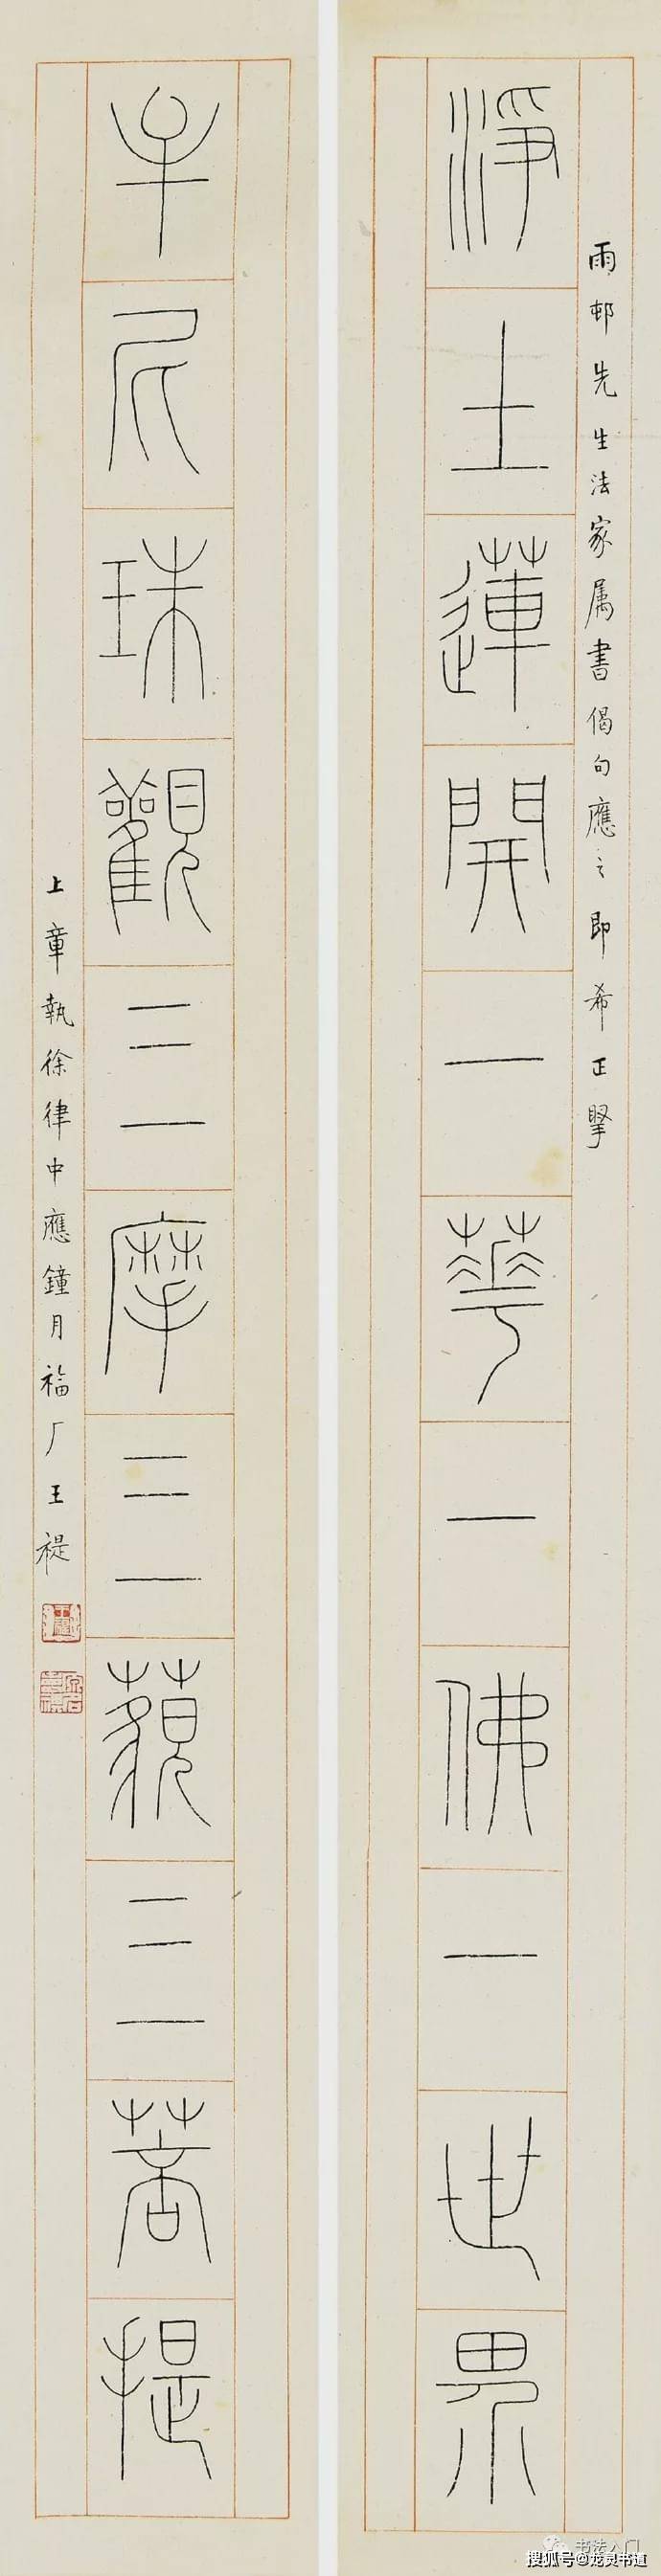 雨邨先生法家属書偈句應之即希正掔
淨土蓮開一華一佛一世界
牟尼珠觀三摩三藐三菩提
上章執徐律中應鐘月福厂王禔
书法入门
搜狐号@龙灵书道